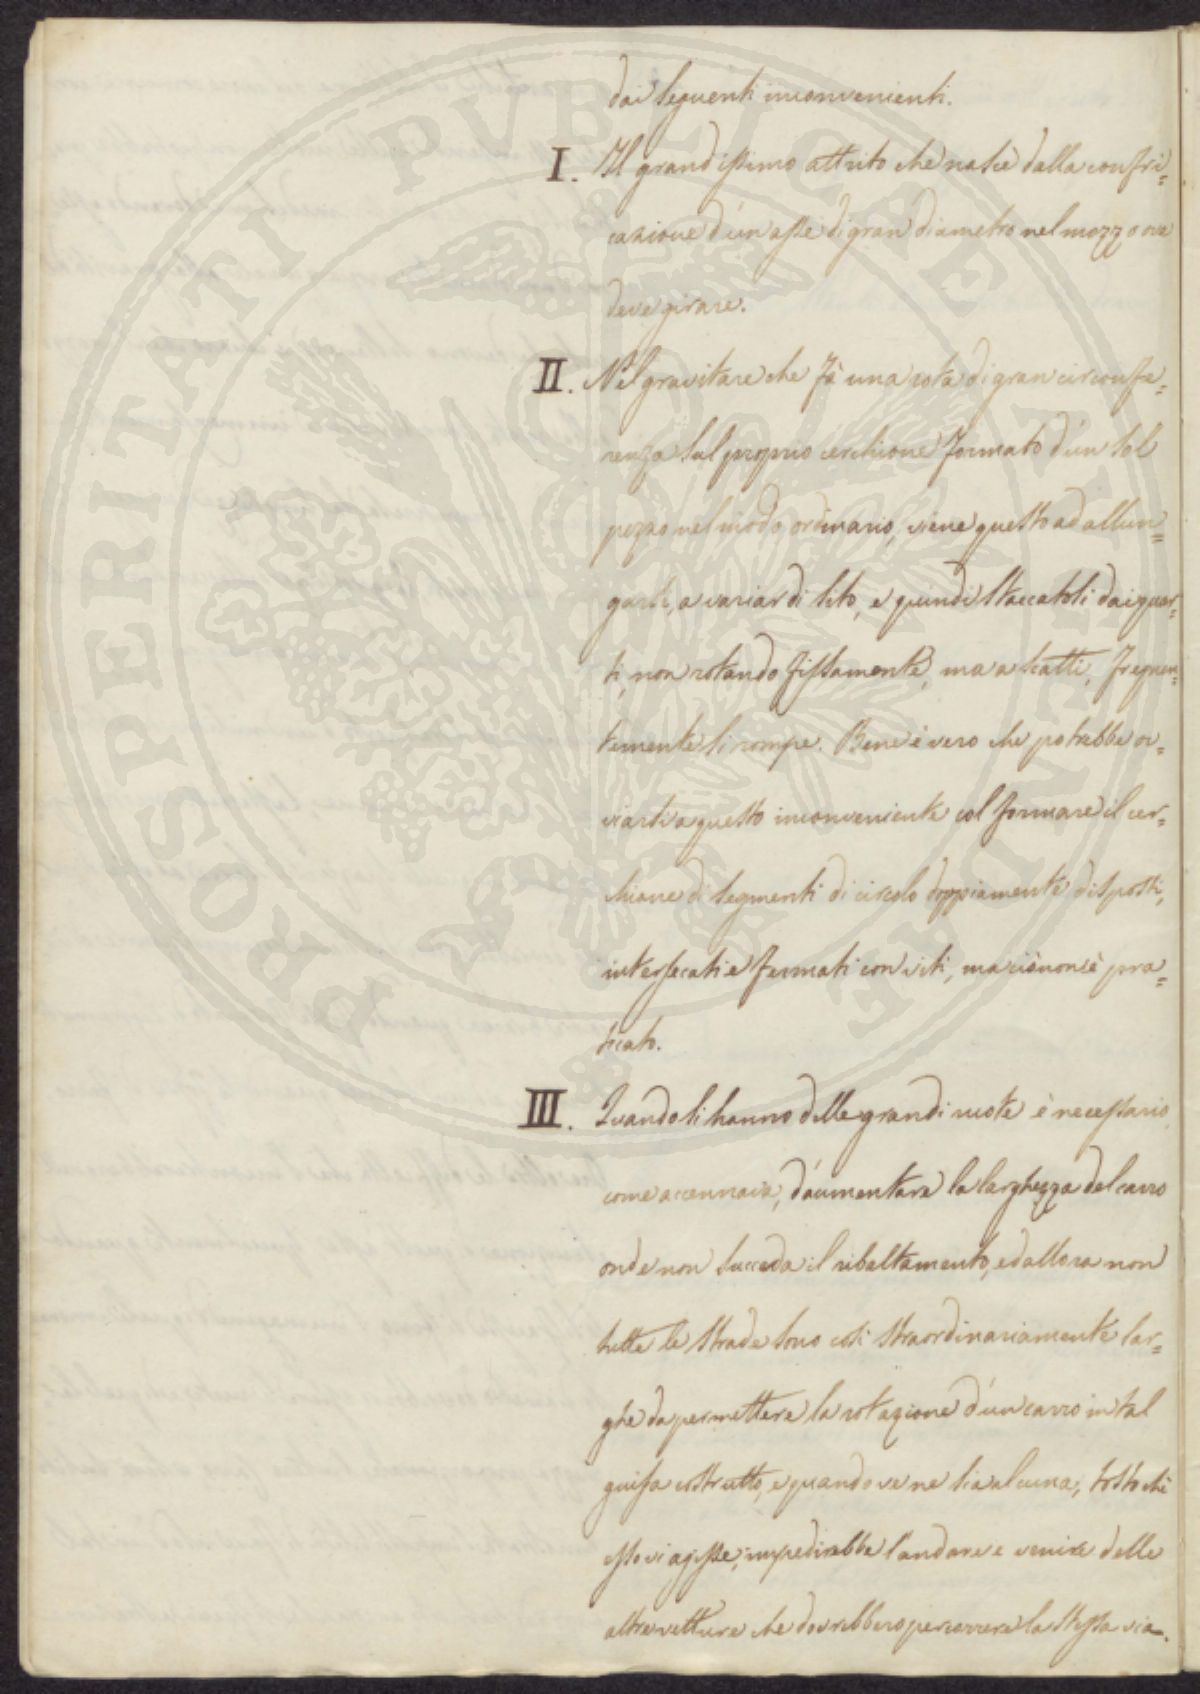 dai seguenti inconvenienti.
I. Il grandissimo attrito che nasce dalla confri=
cazione d'un asse di gran diametro nel mozzo ove
deve girare.
II. Nel gravitare che fà una rota di gran circonfe=
renza sul proprio cerchione formato d'un sol
pezzo nel modo ordinario, viene questo ad allun=
garsi, a variar di sito, e quindi staccatosi dai quar=
ti, non rotando fissamente, ma a scatti, frequen=
temente si rompe. Bene è vero che potrebbe ov=
viarsi a questo inconveniente col formare il cer=
chione di segmenti di circolo doppiamente disposti,
intersecati e fermati con viti, ma ciò non è pra=
ticato.
III. Quando si hanno delle grandi ruote è necessario,
come accennava, d'aumentare la larghezza del carro
onde non succeda il ribaltamento, ed allora non
tutte le strade sono così straordinariamente lar=
ghe da permettere la rotazione d'un carro in tal
guisa costrutto, e quando ve ne sia alcuna, tosto chè
esso vi agisse, impedirebbe l'andare e venire delle
altre vetture che dovrebbero percorrere la stessa via.
PROSPERITATI PVBLICAE